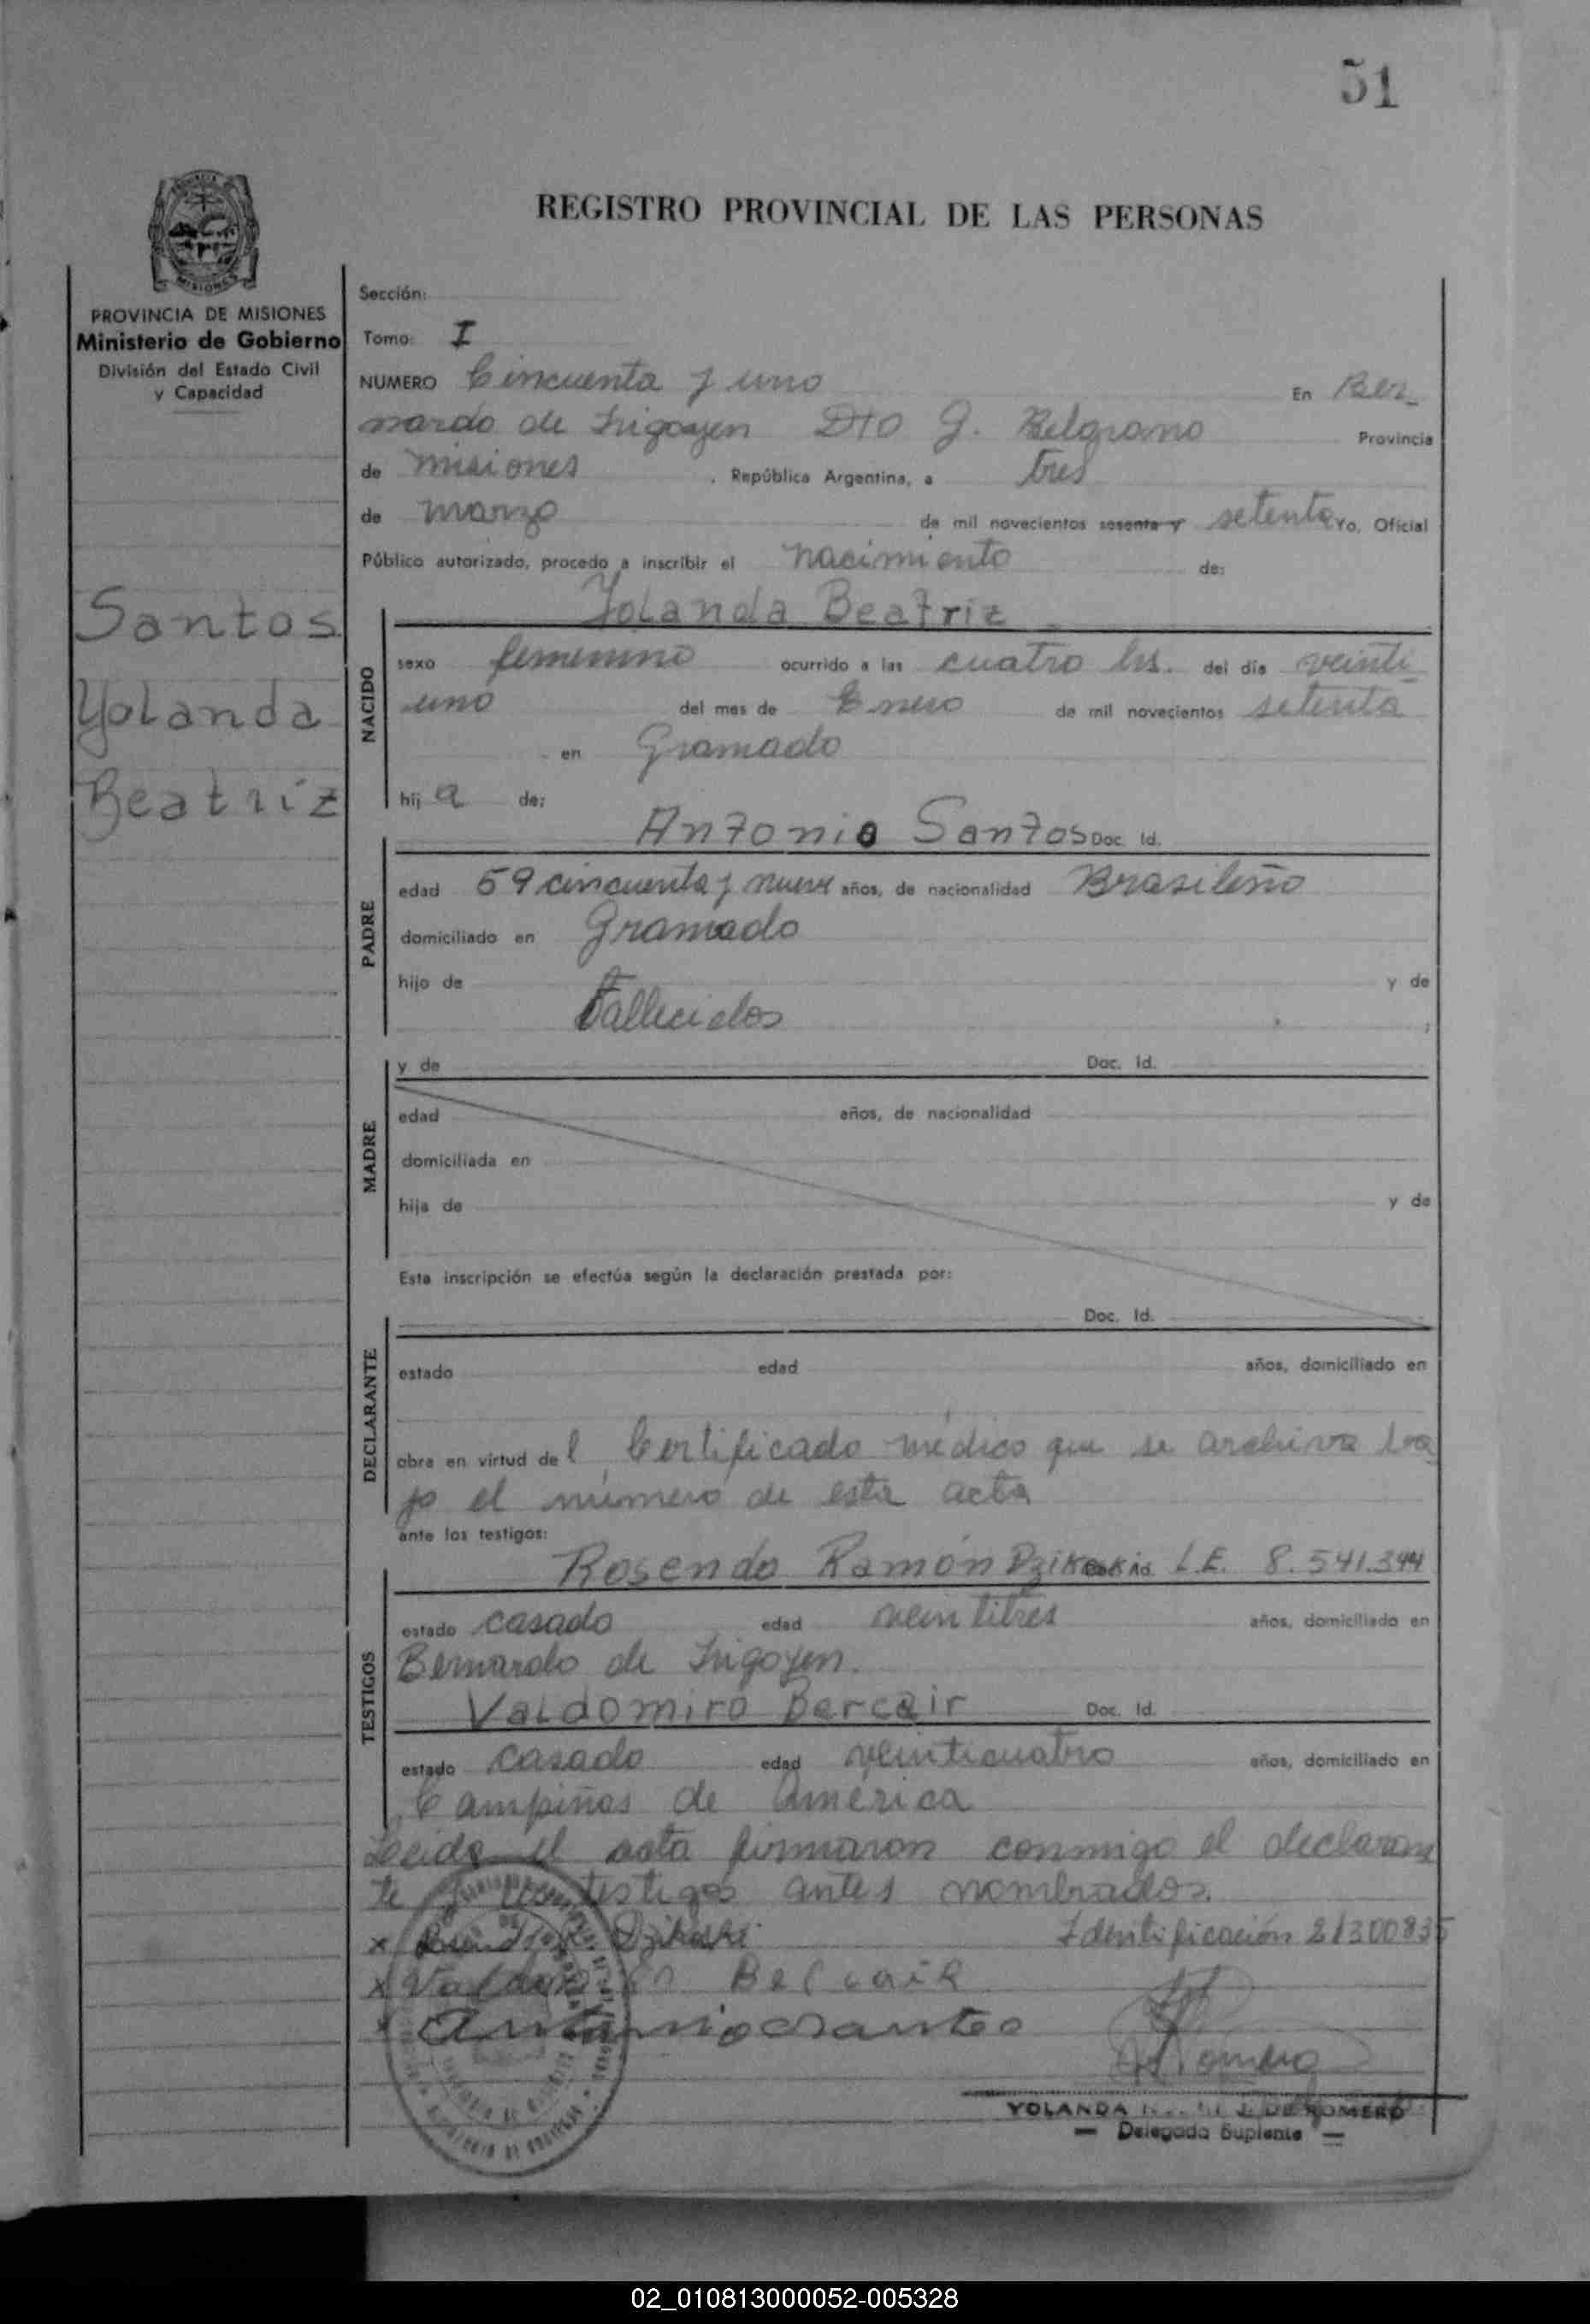 51
REGISTRO PROVINCIAL DE LAS PERSONAS
MISIONES
PROVINCIA DE MISIONES
Ministerio de Gobierno
División del Estado Civil
y Capacidad
Santos
Yolanda
Beatriz
Sección:
Tomo: I
NUMERO Cincuenta y uno En Ber_
nardo de Irigoyen Dto G. Belgrano Provincia
de misiones, República Argentina, a tres
de marzo de mil novecientos sesenta y setenta Yo, Oficial
Público autorizado, procedo a inscribir el nacimiento de:
Yolanda Beatriz
NACIDO
sexo femenino ocurrido a las cuatro hs. del día veinti
uno del mes de Enero de mil novecientos setenta
en Gramado
hij a de:
Antonio Santos Doc. Id.
PADRE
edad 59 cincuenta y nueve años, de nacionalidad Brasileño
domiciliado en Gramado
hijo de y de
Fallecidos ;
MADRE
y de Doc. Id.
edad años, de nacionalidad
domiciliada en
hija de y de
Esta inscripción se efectúa según la declaración prestada por:
Doc. Id.
DECLARANTE
estado edad años, domiciliado en
obra en virtud de l Certificado médico que se archiva ba
jo el número de esta acta
ante los testigos:
Rosendo Ramón L.E. 8.541.394
TESTIGOS
estado casado edad veintitres años, domiciliado en
Bernardo de Irigoyen.
Valdomiro Bercair Doc. Id.
estado casado edad veinticuatro años, domiciliado en
Campiñas de América
Leida el acta firmaron conmigo el declaran
te y los testigos antes nombrados.
x Dzikoski Identificación 21300835
x Belcair
x Antonio Santos
Romero
YOLANDA J. DE ROMERO
— Delegada Suplente —
02_010813000052-005328